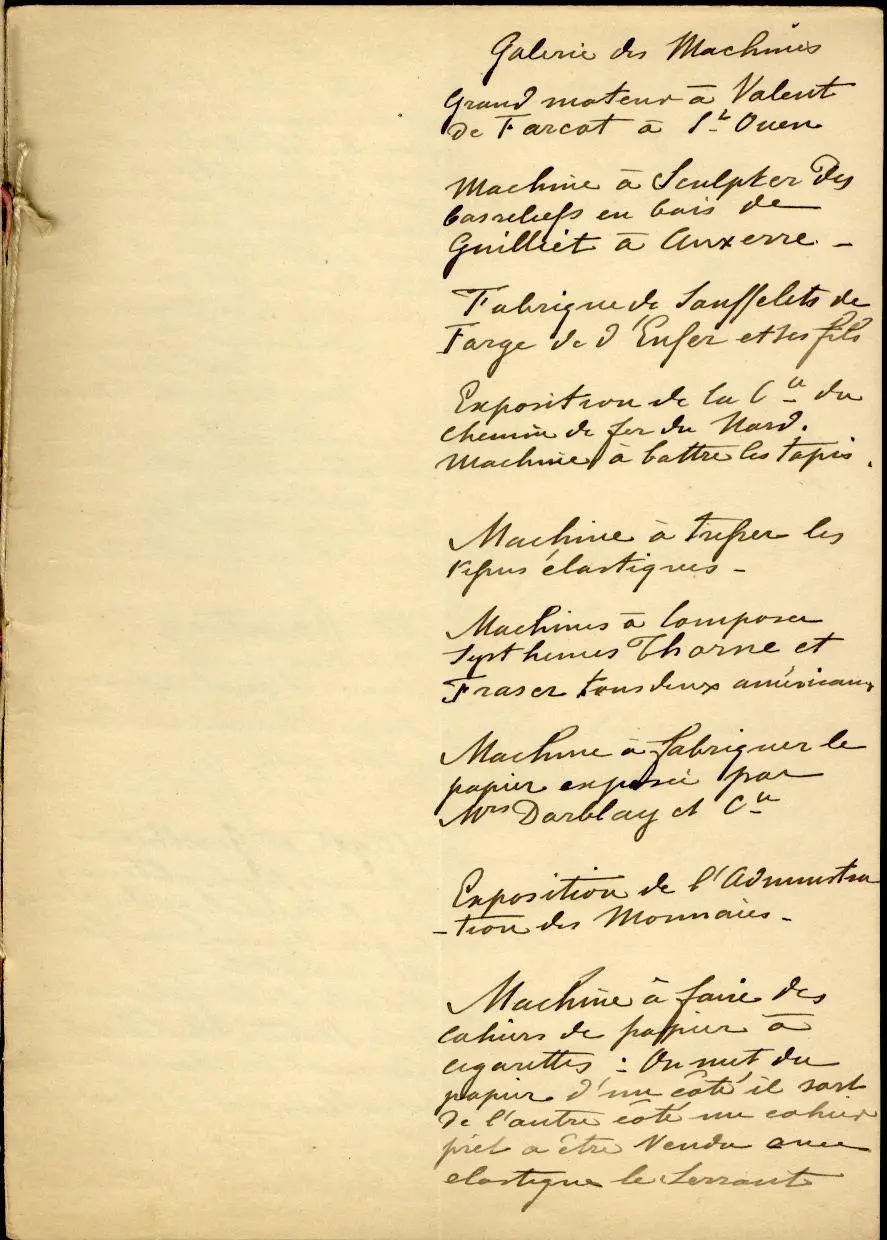 Galerie des Machines
Grand moteur à Valent
de Farcot à St Ouen
Machine à Sculpter des
basreliefs en bois de
Guilliet à Auxerre -
Fabrique de Soufflets de
Forge de d'Enfer et ses fils
Exposition de la Cie du
chemin de fer du Nord.
Machine à battre les tapis.
Machine à tresser les
tissus élastiques -
Machines à Composer
Systhemes Thorne et
Fraser tous deux américains
Machine à fabriquer le
papier exposée par
Mrs Darblay et Cie
Exposition de l'Administra
-tion des Monnaies -
Machine à faire des
cahiers de papier à
cigarettes : On met du
papier d'un côté il sort
de l'autre côté un cahier
prêt a être Vendu avec
elastique le Serrant